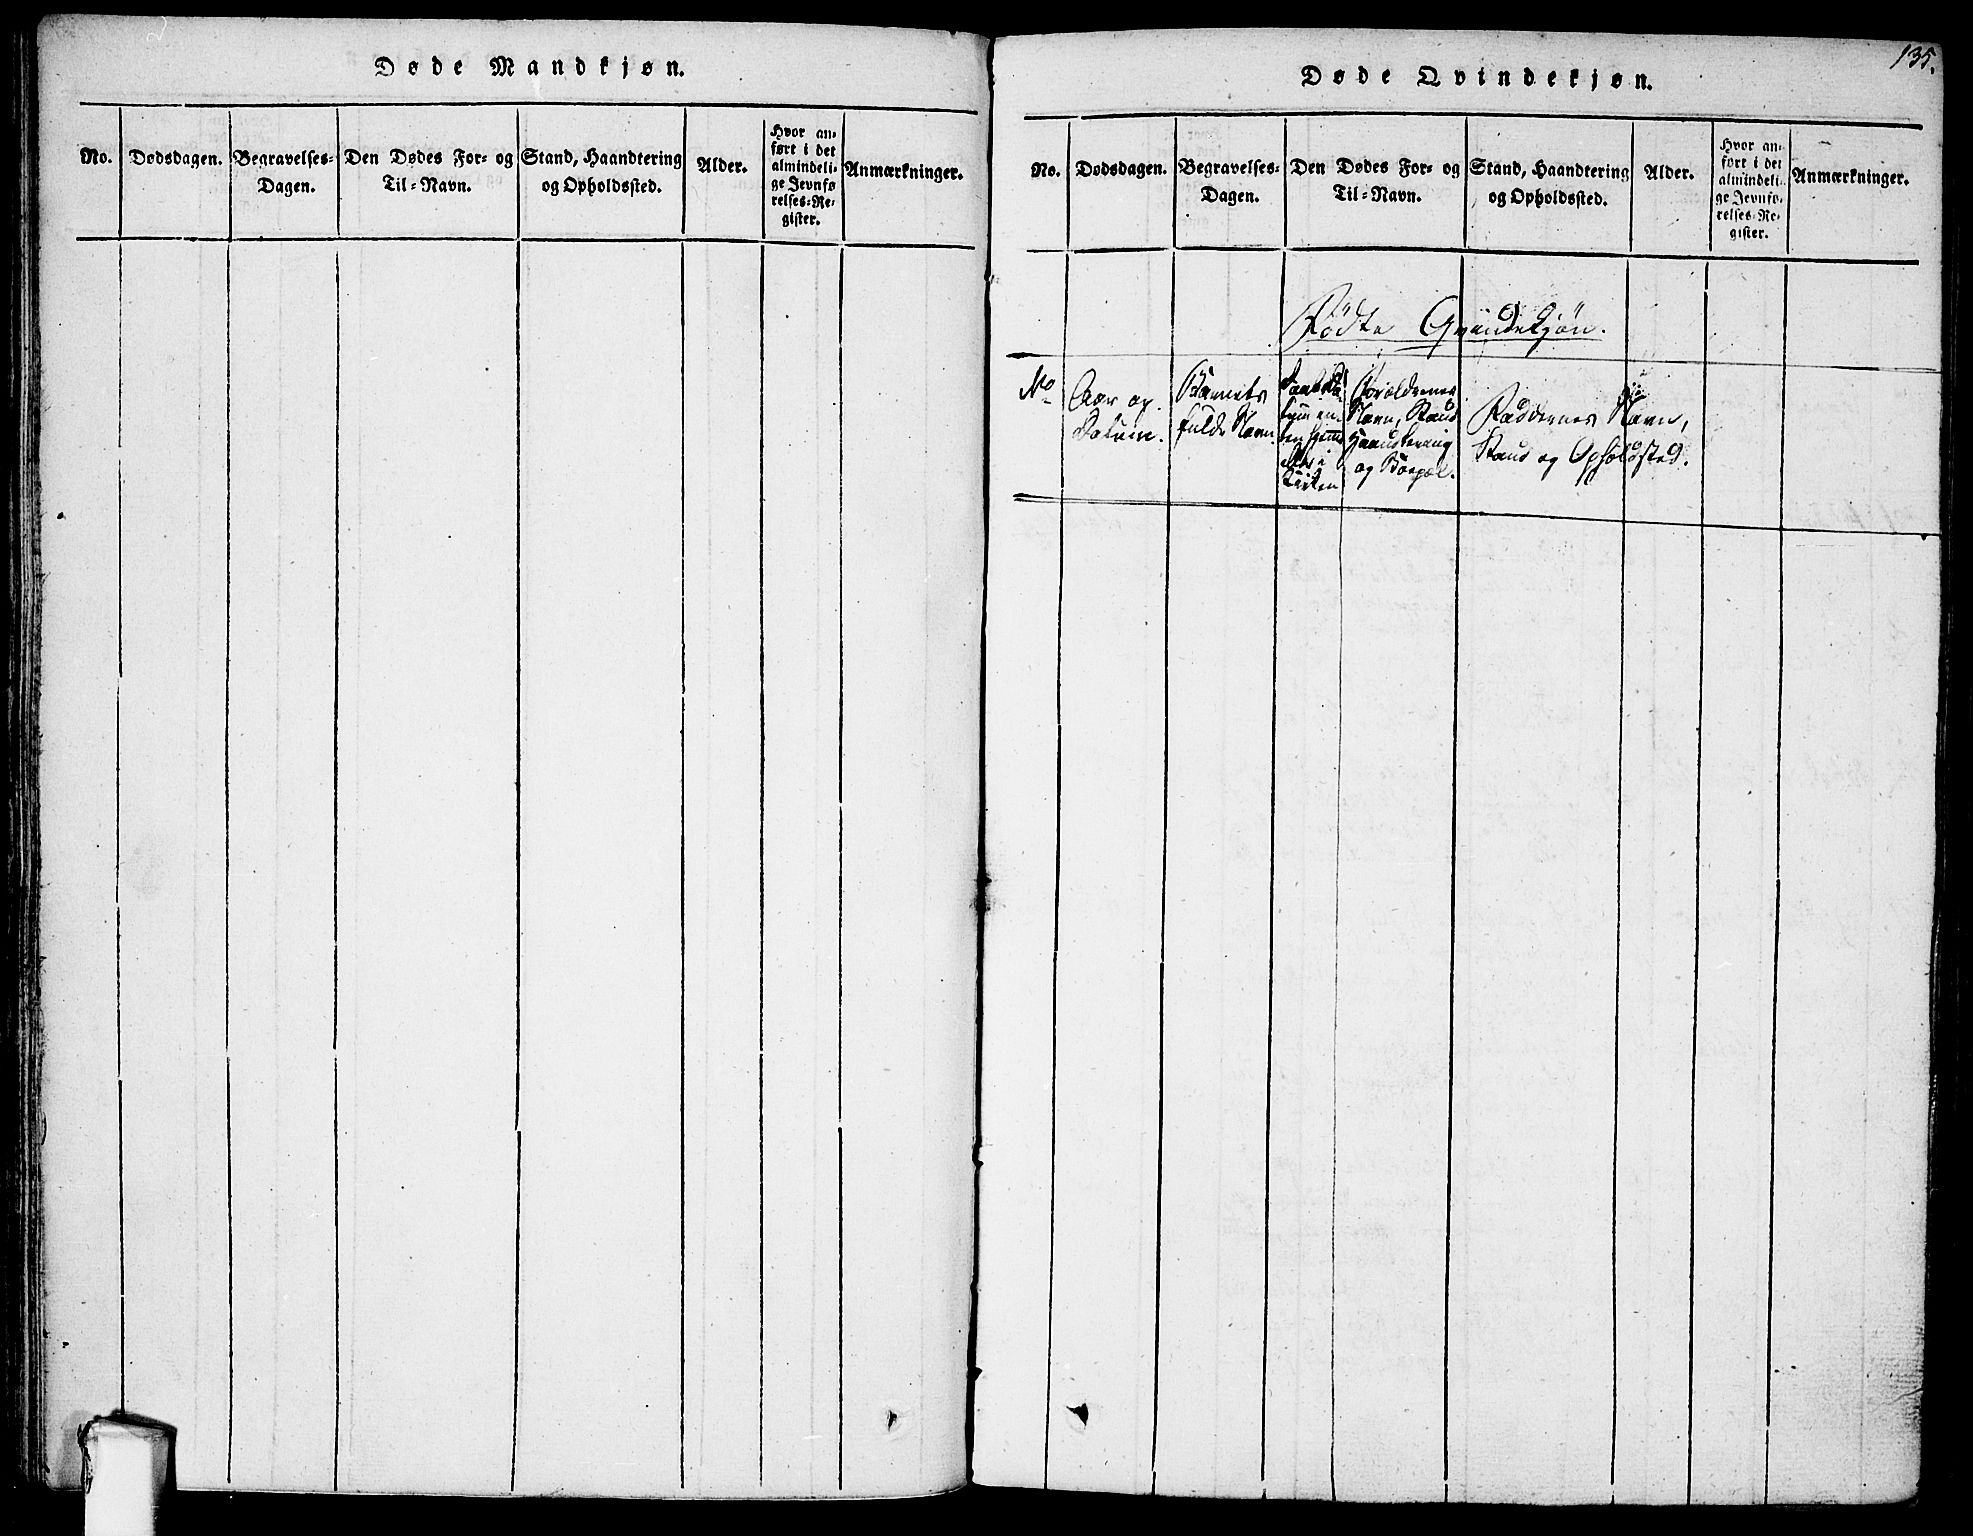 Døde Mandkjøn.
No.
Dødsdagen.
Begravelses-
Dagen.
Den Dødes For- og
Til-Navn.
Stand, Haandtering
og Opholdssted.
Alder.
Hvor an-
ført i det
almindeli-
ge Jevnfø
relses-Re-
gister.
Anmærkninger.
135.
Døde Qvindekjøn.
No.
Dødsdagen.
Begravelses-
Dagen.
Den Dødes For- og
Til-Navn.
Stand, Haandtering
og Opholdssted.
Alder.
Hvor an-
ført i det
almindeli-
ge Jevnfø-
relses-Re-
gister.
Anmærkninger.
Födte Qvindekjön.
No
Aar og
Datum.
Barnets
fulde Navn.
eller i
Kirken
Forældrenes
Navn, Stand
Haandtering
og Boepæl.
Faddernes Navn,
Stand og Opholdsted.